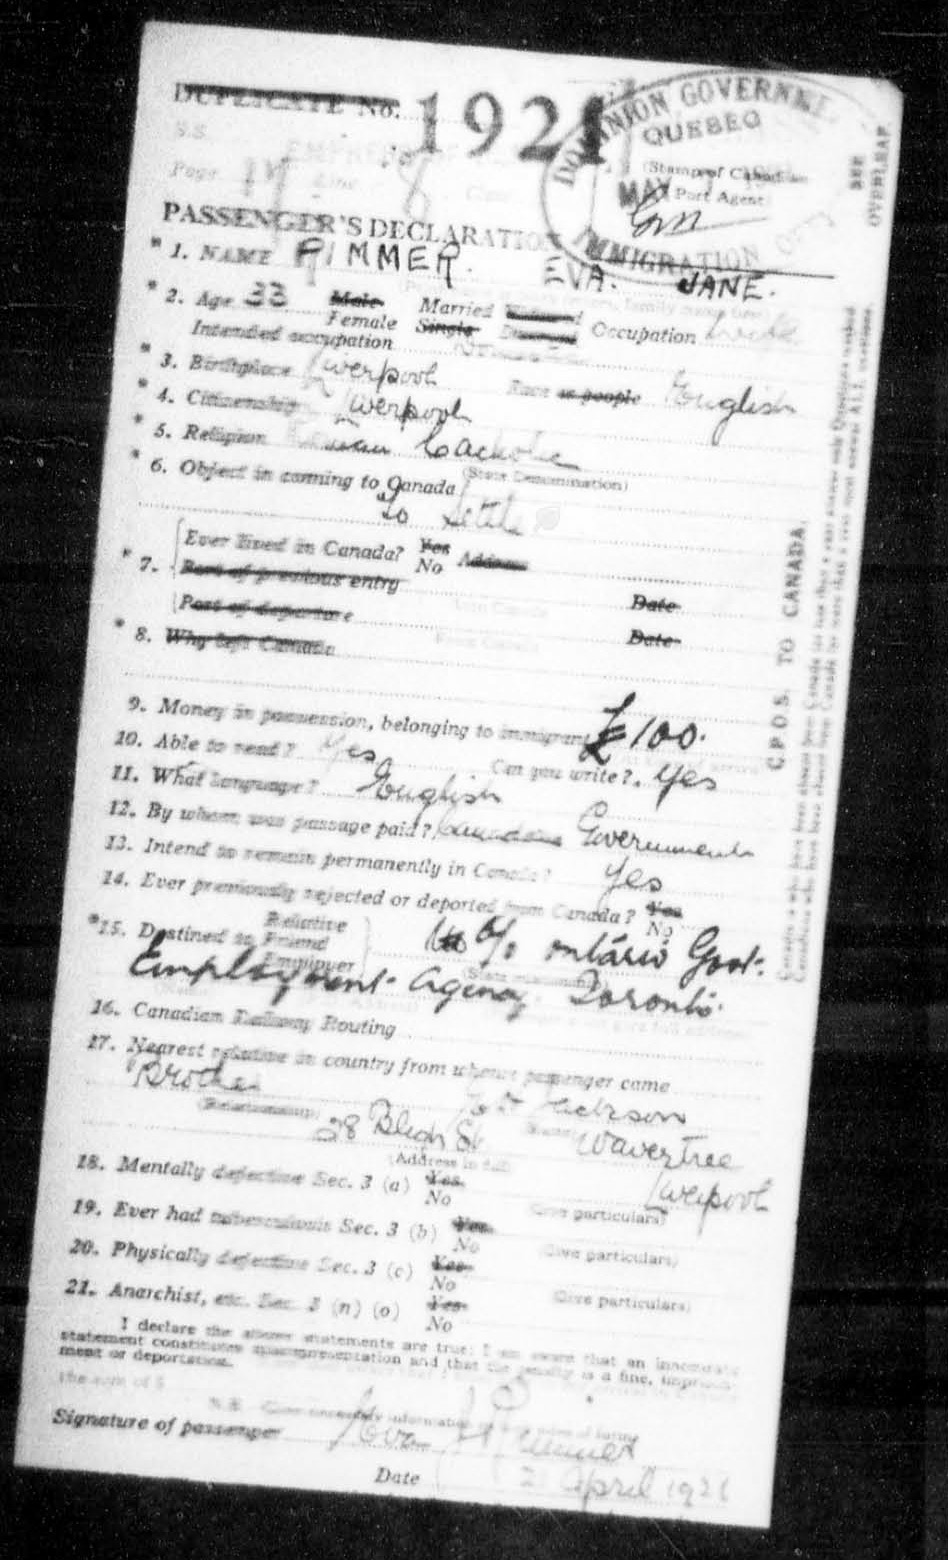 DUPLICATE No. 1921
S.S. EMPRESS OF
Page 17 Line 8 Class
DOMINION GOVERNME
QUEBEC
(Stamp of Canadian
MAY
Port Agent)
IMMIGRATION
SEE OVERLEAF
PASSENGER'S DECLARATION
* 1. NAME RIMMER. EVA. JANE.
* 2. Age 33 Male Married Widowed
Female Single Divorced Occupation Wife
Intended occupation
* 3. Birthplace Liverpool Race or people English
* 4. Citizenship Liverpool
* 5. Religion Roman Catholic
(State Denomination)
* 6. Object in coming to Canada
To Settle
Ever lived in Canada? Yes No Address
* 7. Port of previous entry Date
Port of departure Date
* 8. Why left Canada
9. Money in possession, belonging to immigrant £100.
10. Able to read? Yes Can you write? Yes
11. What language? English
12. By whom was passage paid? Canadian Government
13. Intend to remain permanently in Canada? Yes
14. Ever previously rejected or deported from Canada? Yes No
*15. Destined to Relative Friend Employer c/o Ontario Govt.
Employment Agency Toronto.
16. Canadian Railway Routing
17. Nearest relative in country from whence passenger came
Brother Jackson
(Relationship) (Name)
28 Bligh St Wavertree
(Address in full)
Liverpool
18. Mentally defective Sec. 3 (a) Yes No (Give particulars)
19. Ever had tuberculosis Sec. 3 (b) Yes No (Give particulars)
20. Physically defective Sec. 3 (c) Yes No (Give particulars)
21. Anarchist, etc. Sec. 3 (n) (o) Yes No
I declare the above statements are true; I am aware that an inaccurate
statement constitutes misrepresentation and that the penalty is a fine, imprison-
ment or deportation.
Signature of passenger Eva J Rimmer
Date 21 April 1921
C.P.O.S. TO CANADA.